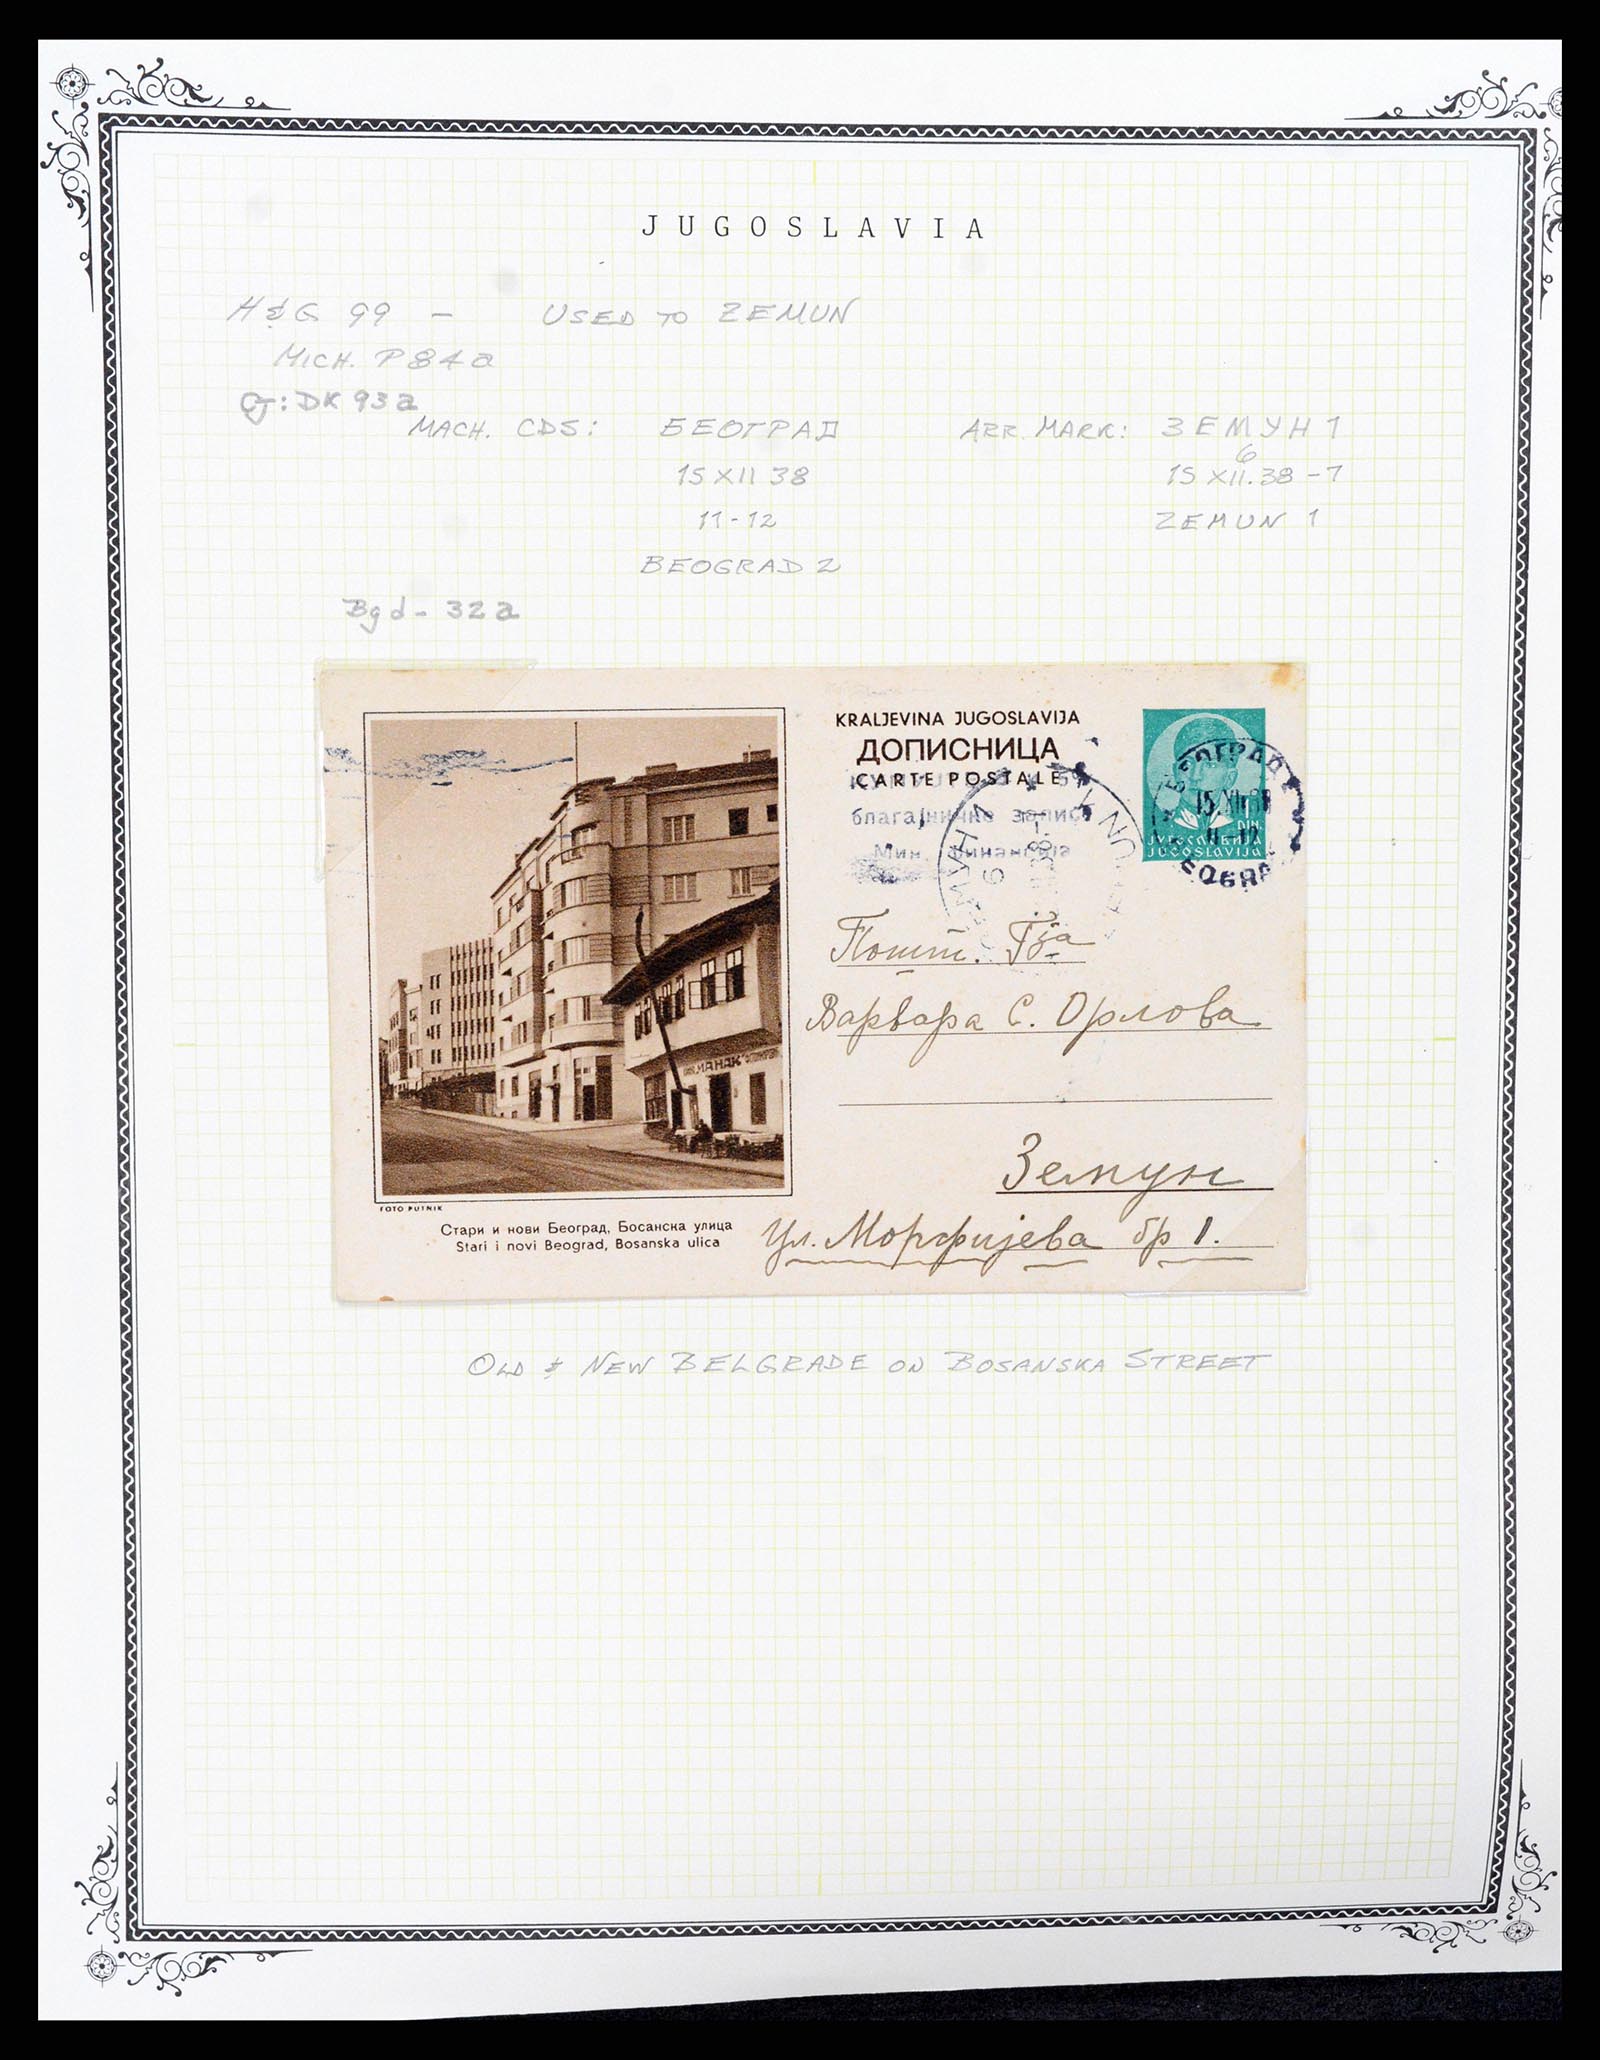 JUGOSLAVIA
H&G 99 - USED TO ZEMUN
MICH. P84a
CJ: DK 93a
MACH. CDS: БЕОГРАД ARR. MARK: ЗЕМУН 1
6
15 XII 38 15 XII.38-7
11-12 ZEMUN 1
BEOGRAD 2
Bgd-32a
KRALJEVINA JUGOSLAVIJA
ДОПИСНИЦА
CARTE POSTALE
благајничке записе
Мин. финансија
БЕОГРАД
15 XII 38
11-12
DIN.
ЈУГОСЛАВИЈА
JUGOSLAVIJA
Пошт. Гђа
Варвара С. Орлова
Земун
Ул. Морфијева бр 1.
МАНАК
FOTO PUTNIK
Стари и нови Београд, Босанска улица
Stari i novi Beograd, Bosanska ulica
OLD & NEW BELGRADE ON BOSANSKA STREET